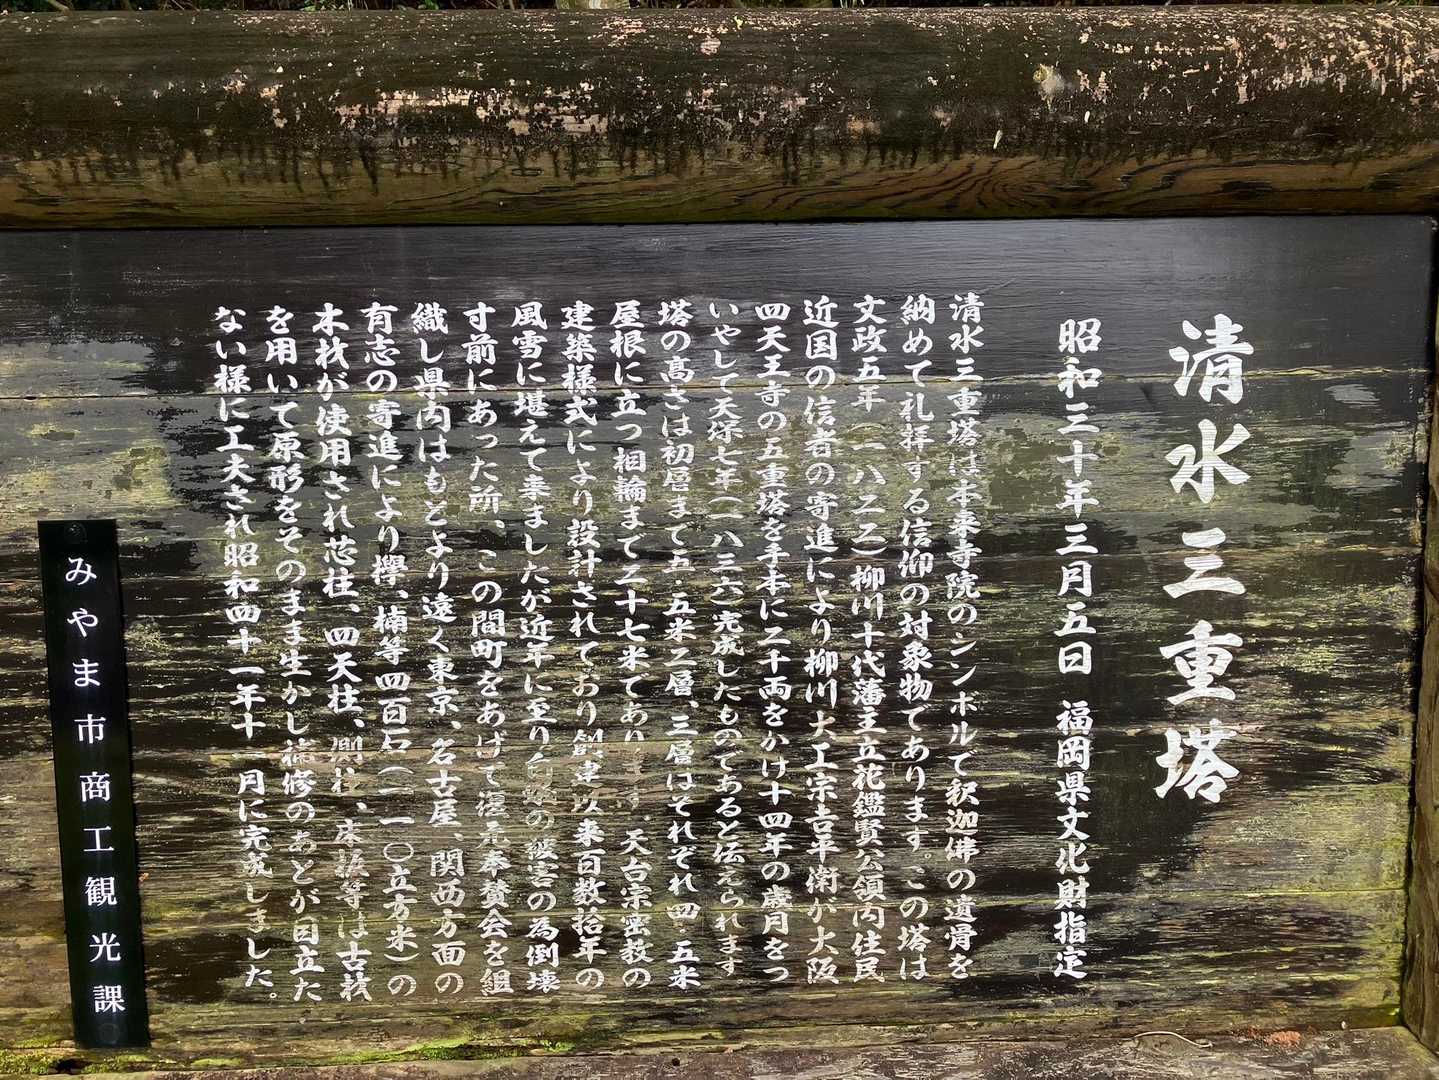 清水三重塔
昭和三十年三月五日 福岡県文化財指定
清水三重塔は本来寺院のシンボルで釈迦佛の遺骨を
納めて礼拝する信仰の対象物であります。この塔は
文政五年(一八二二)柳川十代藩主立花鑑賢公領内住民
近国の信者の寄進により柳川大工宗吉平衛が大阪
四天王寺の五重塔を手本に二千両をかけ十四年の歳月をつ
いやして天保七年(一八三六)完成したものであると伝えられます
塔の高さは初層まで五・五米二層、三層はそれぞれ四・五米
屋根に立つ相輪まで二十七米であります、天台宗密教の
建築様式により設計されており創建以来百数拾年の
風雪に堪えて来ましたが近年に至り の被害の為倒壊
寸前にあった所、この間町をあげて復元奉賛会を組
織し県内はもとより遠く東京、名古屋、関西方面の
有志の寄進により欅、楠等四百石(一一〇立方米)の
木材が使用され芯柱、四天柱、側柱、床板等は古材
を用いて原形をそのまま生かし補修のあとが目立た
ない様に工夫され昭和四十一年十一月に完成しました。
みやま市商工観光課